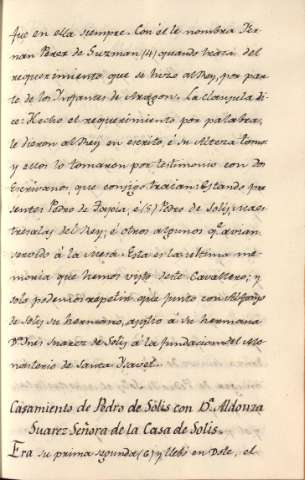 fue en ella siempre. Con él le nombra Fer-
nan Perez de Guzman (4) quando trata del
requerimiento que se hizo al Rey, por par-
te de los Infantes de Aragon. La clausula di-
ce: Hecho el requerimiento por palabra,
le dieron al Rey en escrito, é su Alteza tomo:
y ellos lo tomaron por testimonio con dos
Escrivanos, que consigo traian: Estando pre
sentes Pedro de (5) Pedro de Solis, Maes
tresalas del Rey; é otros algunos q.e avian
servido á la mesa. Esta es la ultima me-
moria que hemos visto deste Cavallero; y
solo podemos repetir que junto con Alfonso
de Solis su hermano, asistio á su hermana
D.ª Ines Suarez de Solis á la fundacion del Mo-
nasterio de Santa Ysavel.
Casamiento de Pedro de Solis con D.ª Aldonza
Suarez Señora de la Casa de Solis.
Era su prima segunda (6) y llevó en Dote, el